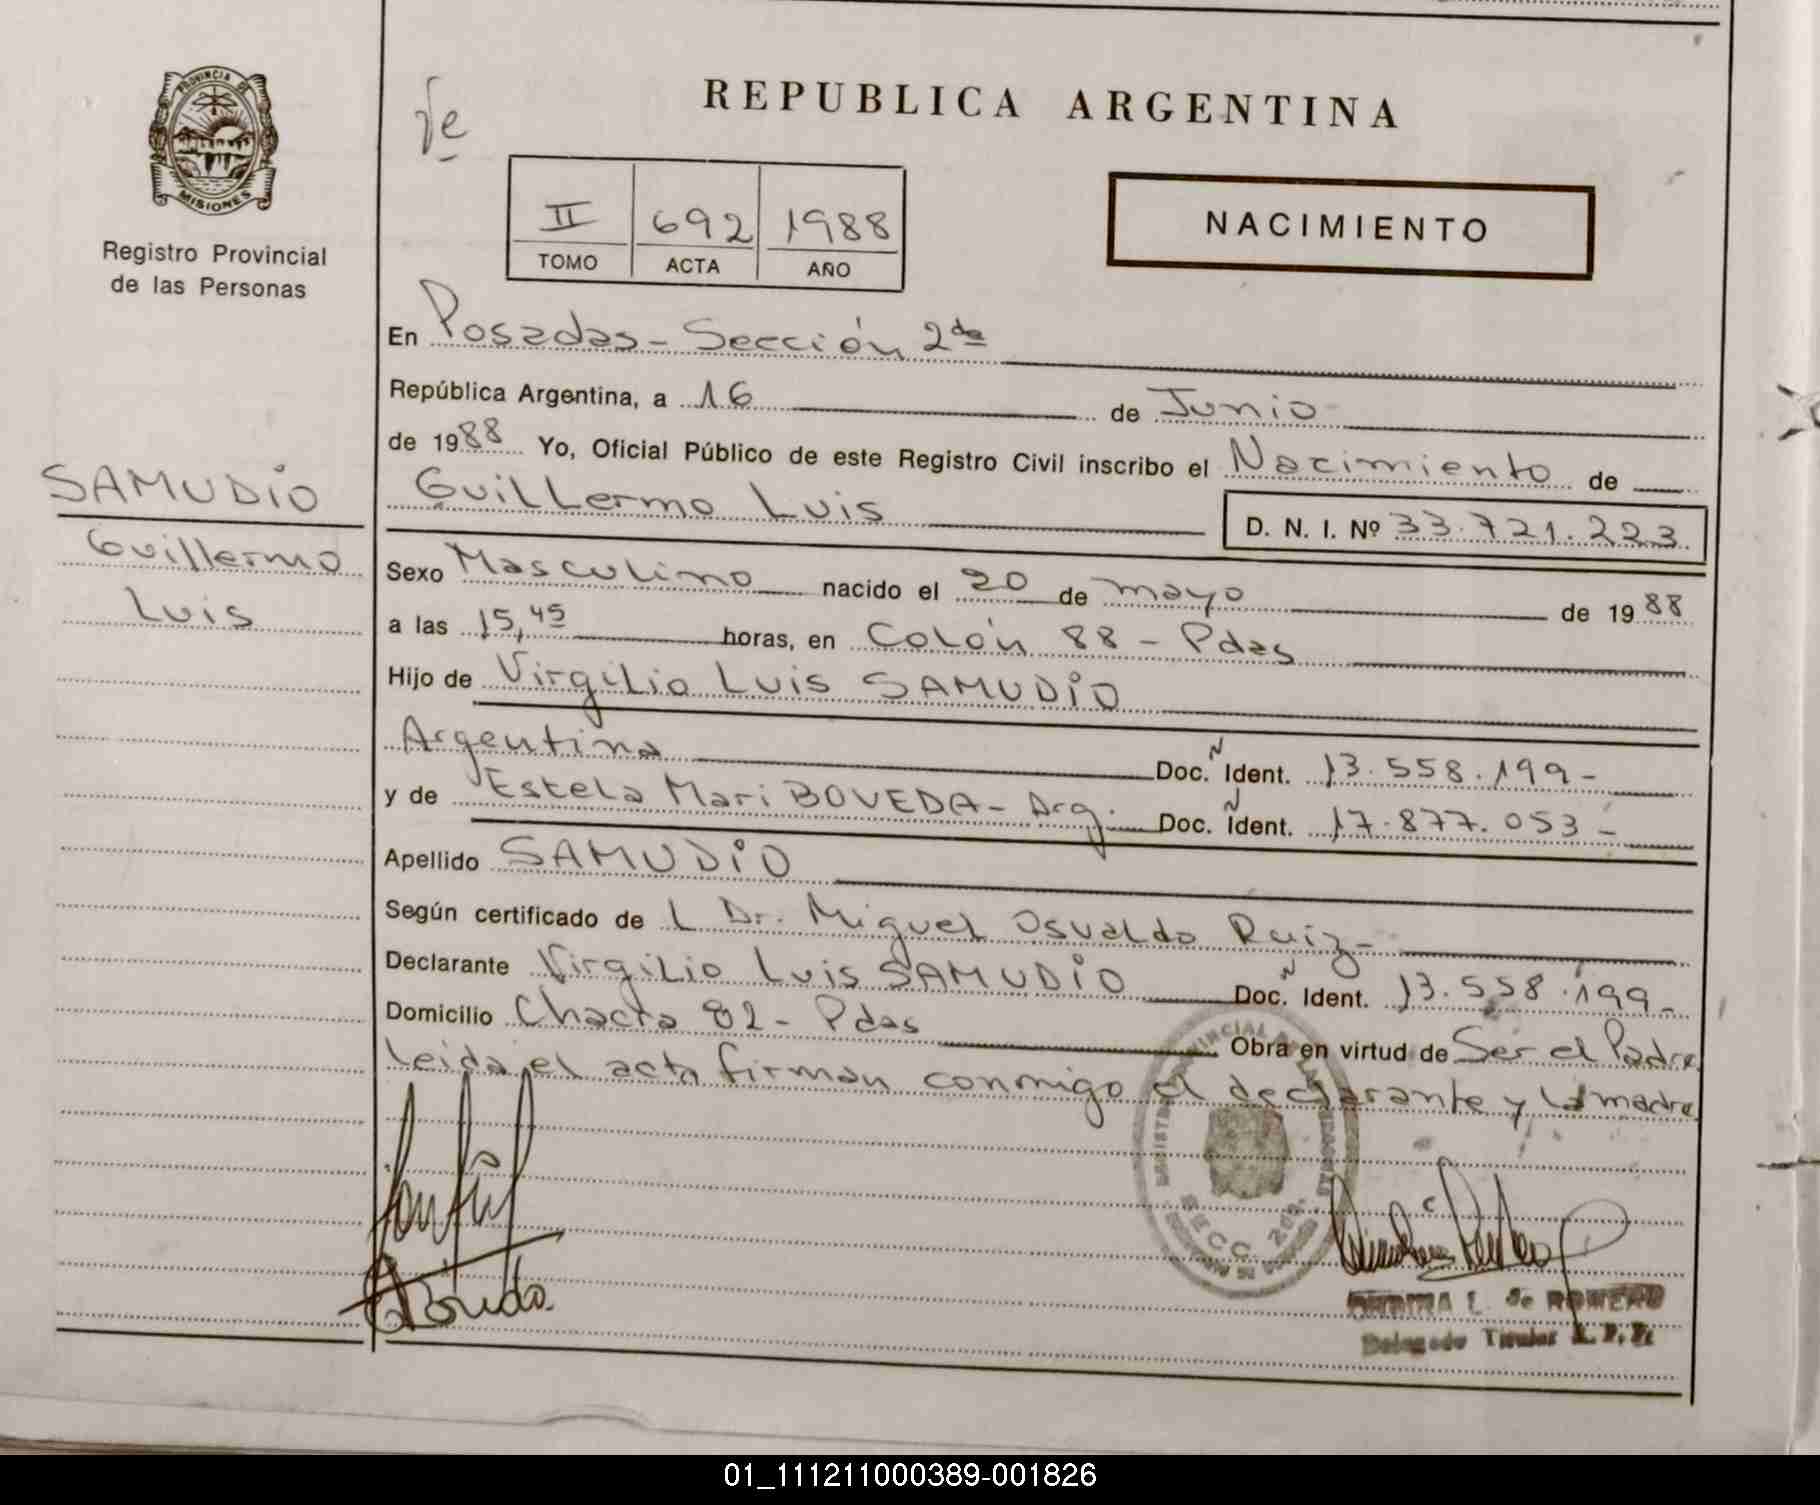 PROVINCIA DE
MISIONES
Registro Provincial
de las Personas
SAMUDIO
Guillermo
Luis
REPUBLICA ARGENTINA
II 692 1988
TOMO ACTA AÑO
NACIMIENTO
En Posadas - Sección 2da
República Argentina, a 16 de Junio
de 1988 Yo, Oficial Público de este Registro Civil inscribo el Nacimiento de
Guillermo Luis D. N. I. Nº 33.721.223
Sexo Masculino nacido el 20 de mayo de 1988
a las 15,45 horas, en Colón 88 - Pdas
Hijo de Virgilio Luis SAMUDIO
Argentina Doc. N Ident. 13.558.199-
y de Estela Mari BOVEDA - Arg. Doc. N Ident. 17.877.053-
Apellido SAMUDIO
Según certificado de L Dr. Miguel Osvaldo Ruiz-
Declarante Virgilio Luis SAMUDIO Doc. N Ident. 13.558.199-
Domicilio Chacra 82 - Pdas Obra en virtud de Ser el Padre
Leida el acta firman conmigo el declarante y la madre
SECC. 2da.
L. de ROMERO
Delegado Titular
01_111211000389-001826